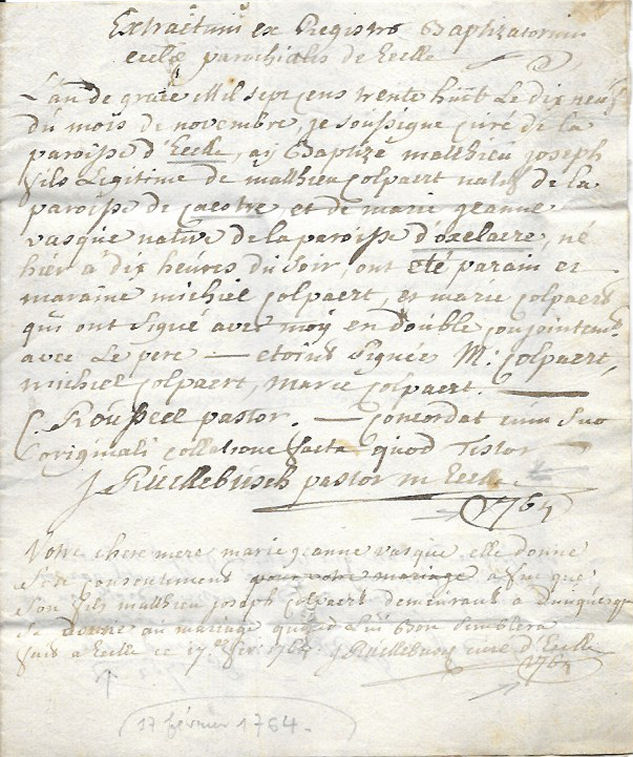 Extractum ex Registro Baptizatorum
eccliæ parochialis de Eecke
L'an de grace Mil sept cens trente huit Le dix neuf
du mois de novembre, je soussigné curé de la
paroisse d'Eecke, aij Baptizé matthieu joseph
fils Legitime de matthieu Colpaert natif de la
paroisse de Caestre, et de marie jeanne
vasque native de la paroisse d'oxelaere, né
hier a dix heures du soir, ont eté parain et
maraine michiel Colpaert, et marie Colpaert
qui ont signé avec moÿ en double conjointemt
avec Le pere — etoint signée M: Colpaert,
michiel Colpaert, Marie Colpaert.
C. Roussel pastor. — Concordat cum suo
originali collatione facta quod Testor
J Ruckebusch pastor in Eecke
1764
Votre chere mere marie jeanne vasque elle donne
consentement pour votre mariage a fin que
Son fils matthieu joseph Colpaert demeurant a
Se donne au mariage quand Lui Bon Semblera
fait a Eecke ce 17e fev: 1764 J Ruckebusch curé d'Eecke
1764
17 février 1764.